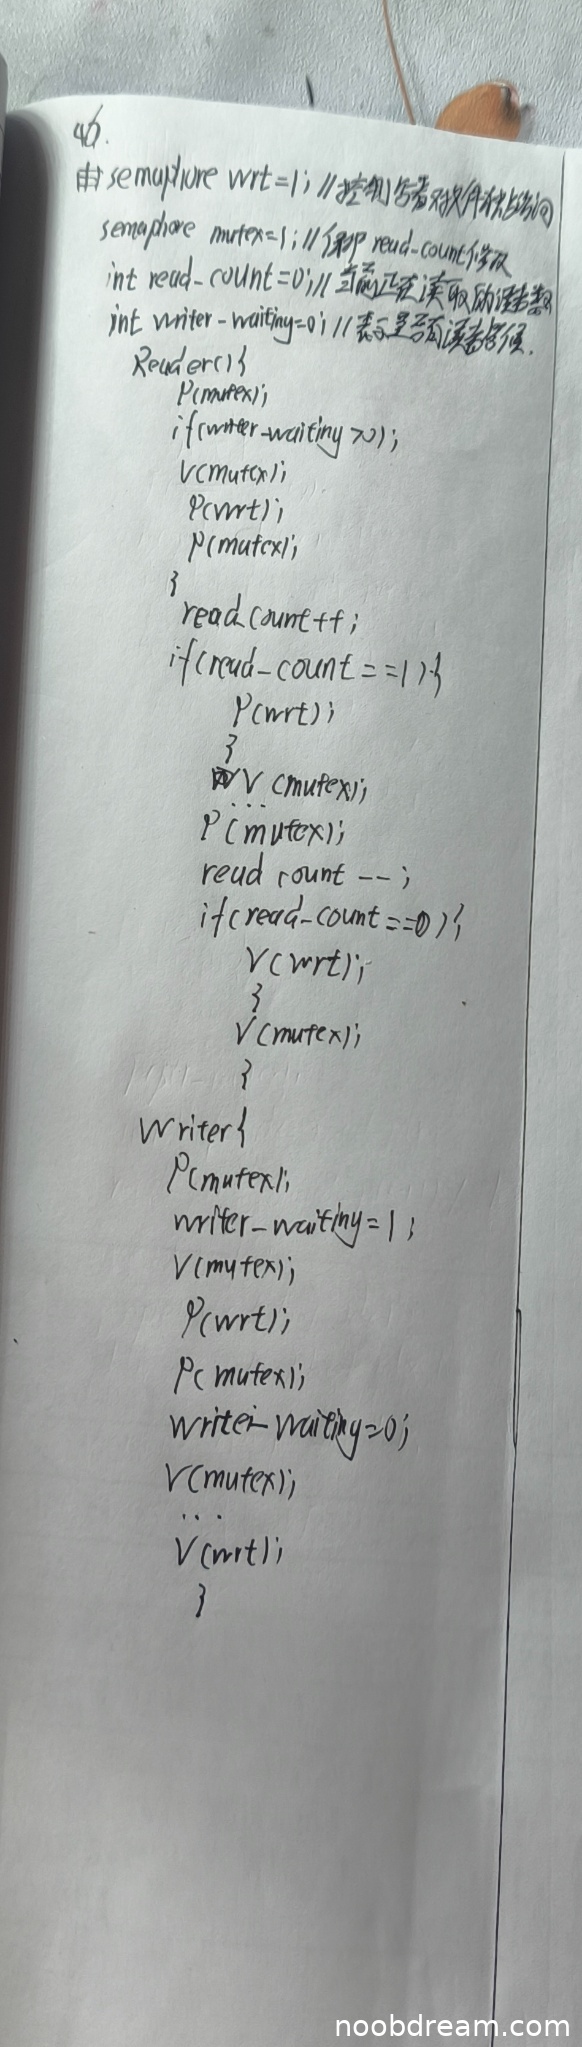 46.
由semaphore wrt=1; //控制写者对文件
semaphore mutex=1; //保护 read-count修改
int read-count=0; //当前正在读取的读者数
int writer-waiting=0; //表示是否有
Reader(){
P(mutex);
if(writer-waiting>0);
V(mutex);
P(wrt);
P(mutex);
}
read count++;
if(read-count==1){
P(wrt);
}
V(mutex);
...
P(mutex);
read count --;
if(read-count==0){
V(wrt);
}
V(mutex);
}
Writer{
P(mutex);
writer-waiting=1;
V(mutex);
P(wrt);
P(mutex);
writer-waiting=0;
V(mutex);
...
V(wrt);
}
noobdream.com